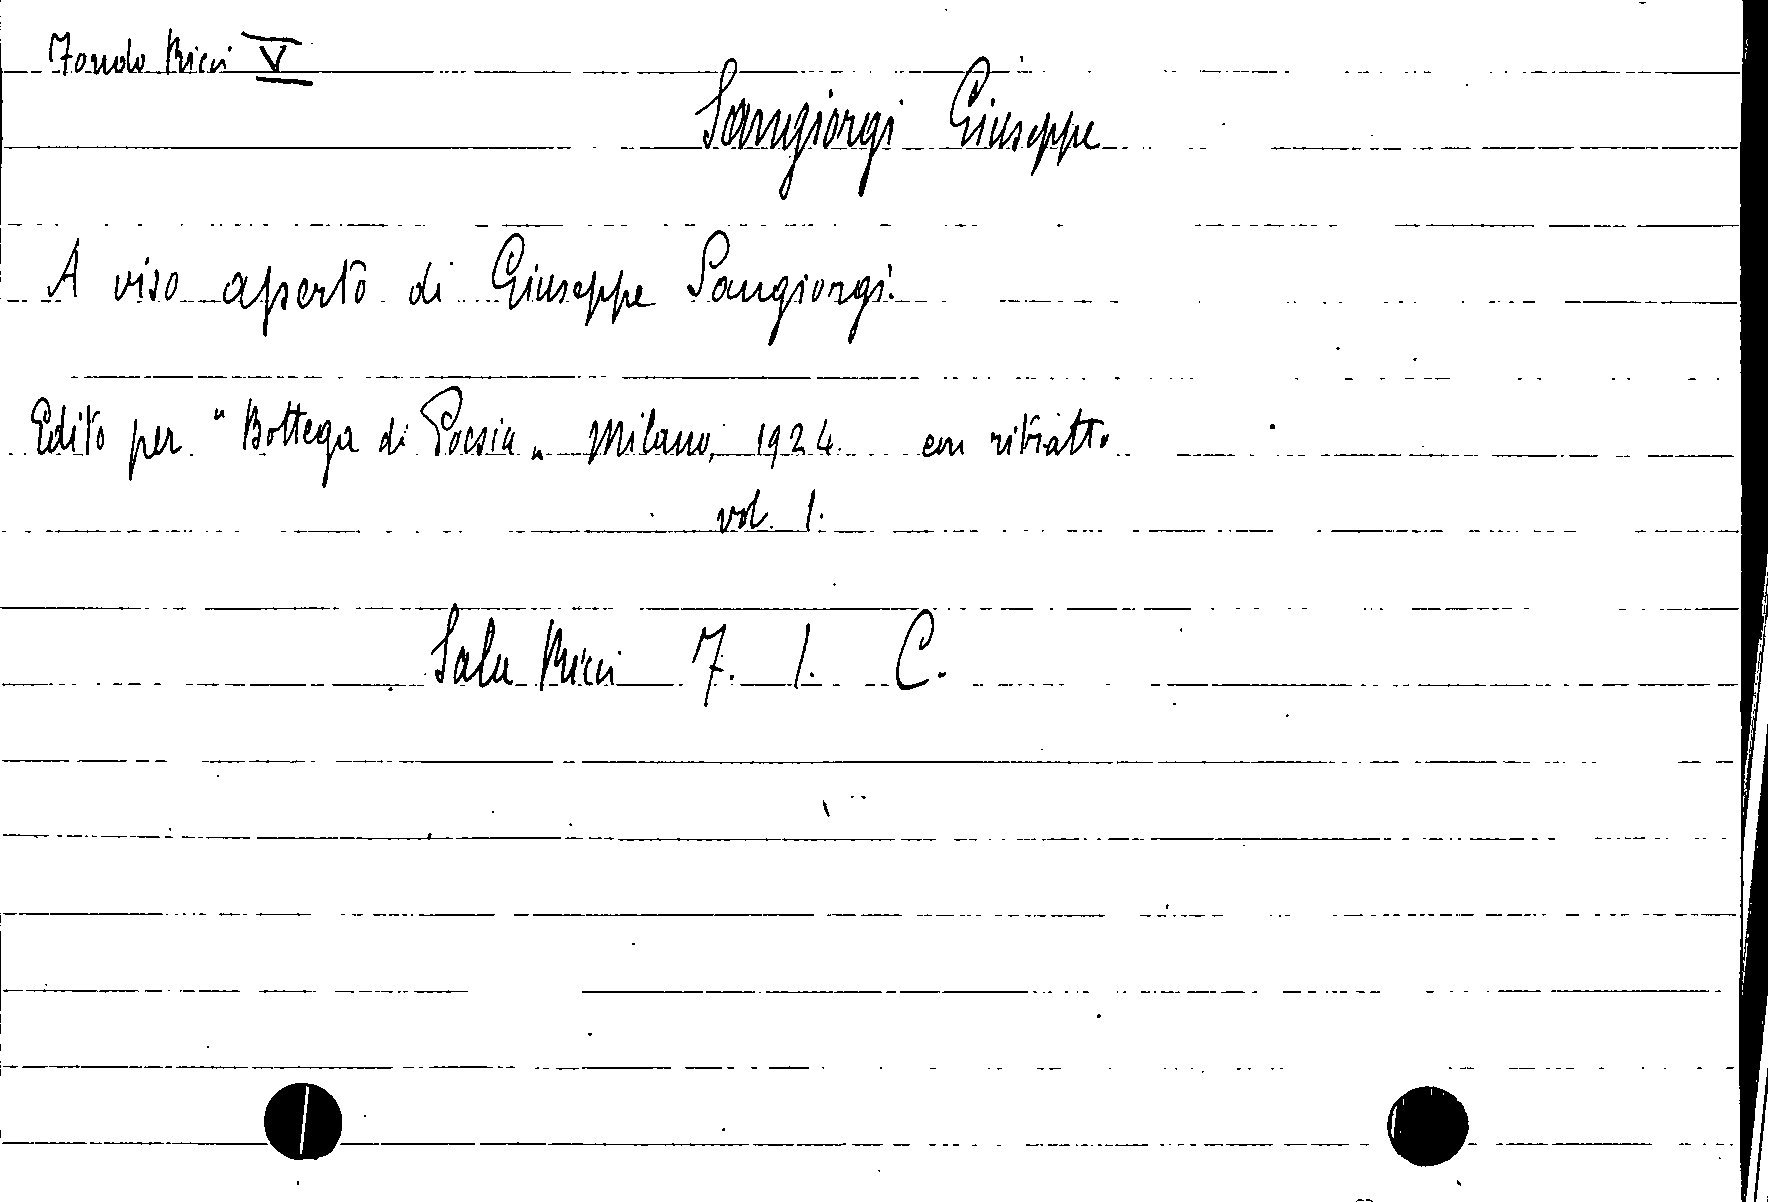 Fondo Ricci V
Sangiorgi Giuseppe
A viso aperto di Giuseppe Sangiorgi.
Edito per "Bottega di Poesia„ Milano, 1924. con ritratto
vol. 1.
Sala Ricci 7. 1. C.